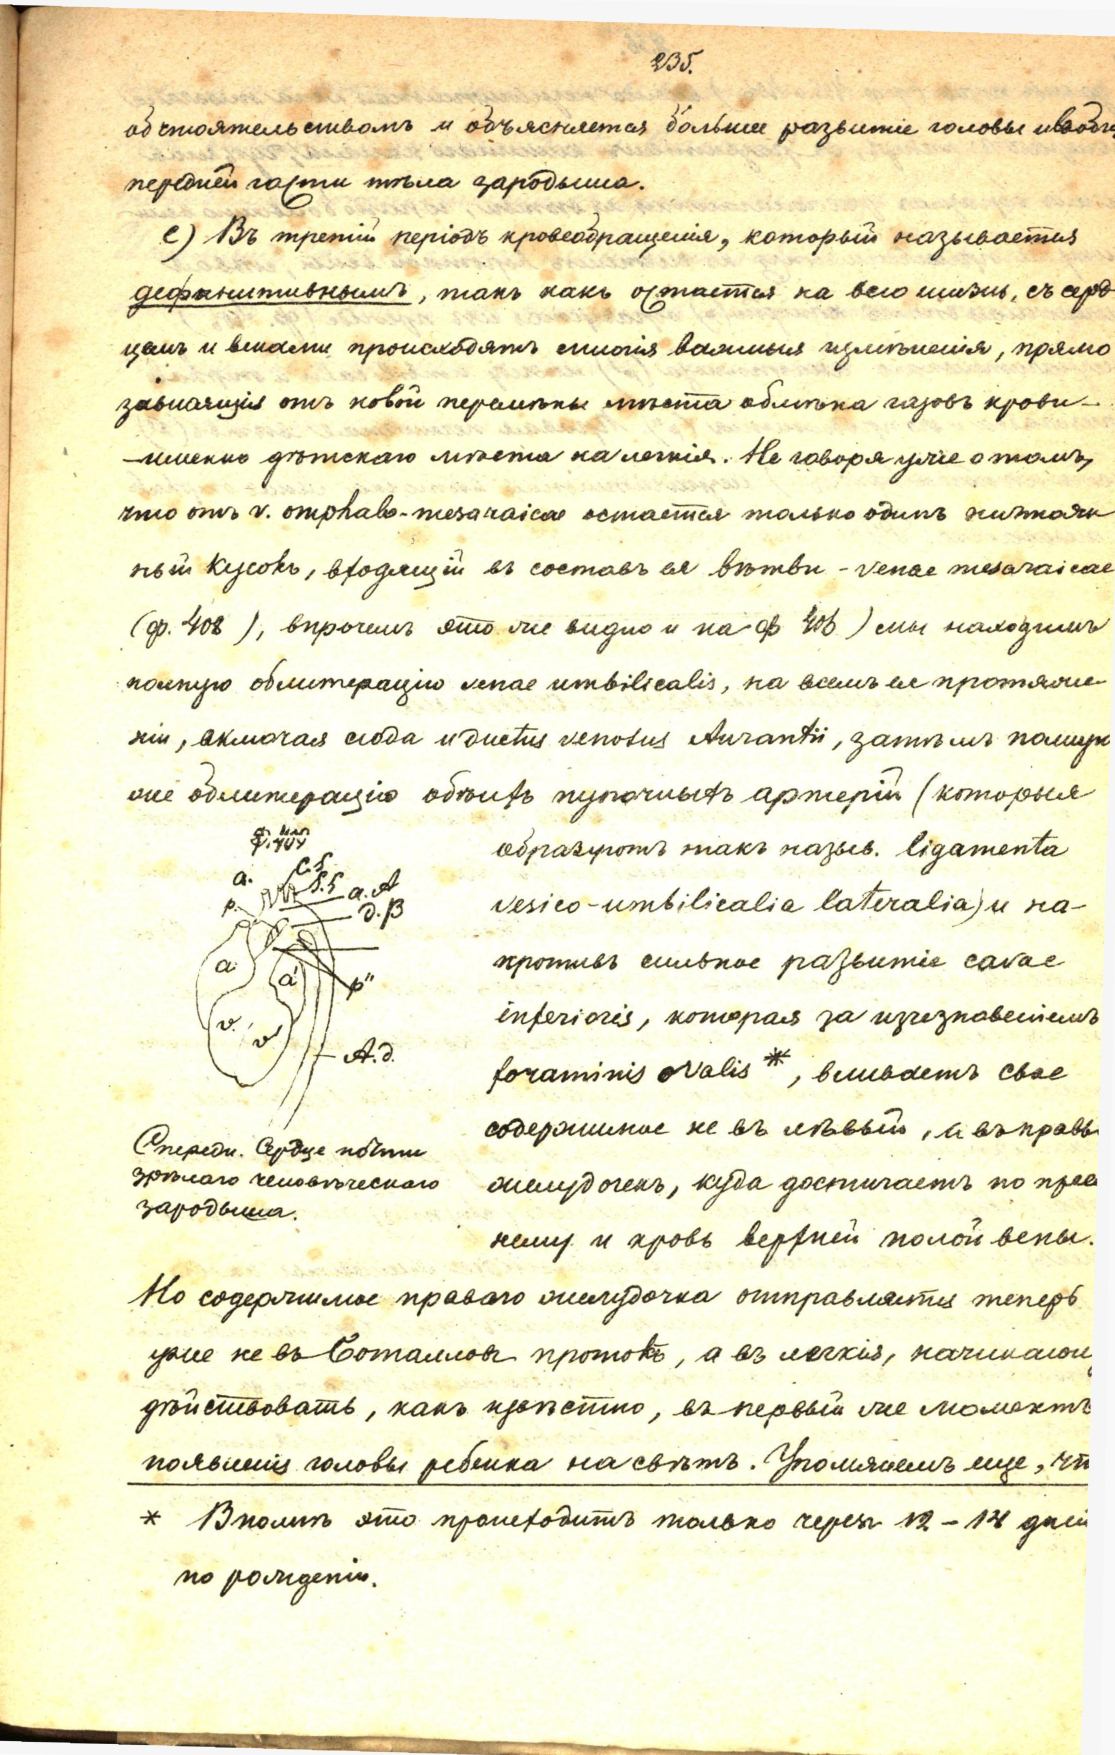 235.
обстоятельствомъ и объясняется большее развитіе головы и вообще
передней части тѣла зародыша.
с) Въ третій періодъ кровеобращенія, который называется
дефинитивнымъ, такъ какъ остается на всю жизнь, съ серд-
цемъ и венами происходятъ многія важныя измѣненія, прямо
зависящія отъ новой перемѣны мѣста обмѣна газовъ крови –
– именно дѣтскаго мѣста на легкія. Не говоря уже о томъ,
что отъ v. omphalo-mesaraicae остается только одинъ ничтож
ный кусокъ, входящій въ составъ ея вѣтви - venae mesaraicae
(ф. 408), впрочемъ это же видно и на ф 406) мы находимъ
полную облитерацію venae umbilicalis, на всемъ ее протяже-
ніи, включая сюда и ductus venosus Aurantii, затѣмъ полную
же облитерацію обѣихъ пупочныхъ артерій (которыя
образуютъ такъ назыв. ligamenta
vesico-umbilicalia lateralia) и на-
противъ сильное развитіе cavae
inferioris, которая за изчезновеніемъ
foraminis ovalis *, вливаетъ свое
содержимое не въ лѣвый, а въ правы
желудочекъ, куда достигаетъ по преж
нему и кровь верхней полой вены.
a.
C.S.
S.S
a.A
p.
d.B
a
a'
p"
v
v'
A.d.
Спереди. Сердце почти
зрѣлаго человѣческаго
зародыша.
Но содержимое праваго желудочка отправляется теперь
уже не въ Боталловъ протокъ, а въ легкія, начинающ
дѣйствовать, какъ извѣстно, въ первый же моментъ
появленія головы ребенка на свѣтъ. Упомянемъ еще, что
* Вполнѣ это происходитъ только черезъ 12 – 14 дней
по рожденіи.